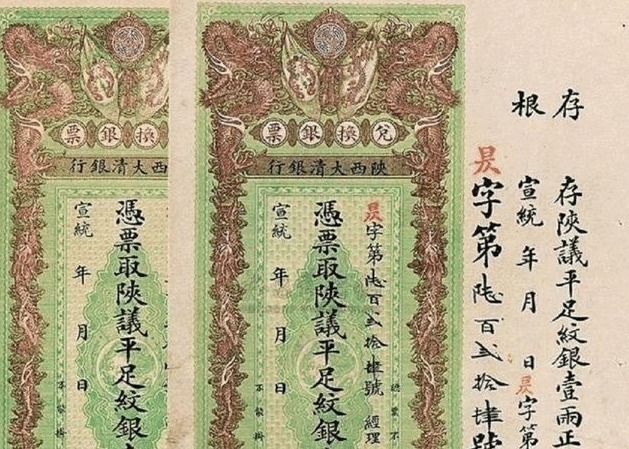 存根
存陝議平足紋銀壹兩正
宣統 年 月 日 昃字第
昃字第陸百貳拾肆號
兌換銀票
陝西大清銀行
昃字第陸百貳拾肆號 經理
憑票取陝議平足紋銀
宣統 年 月 日
換銀票
西大清銀行
憑票取陝議平足紋銀
宣統 年 月 日